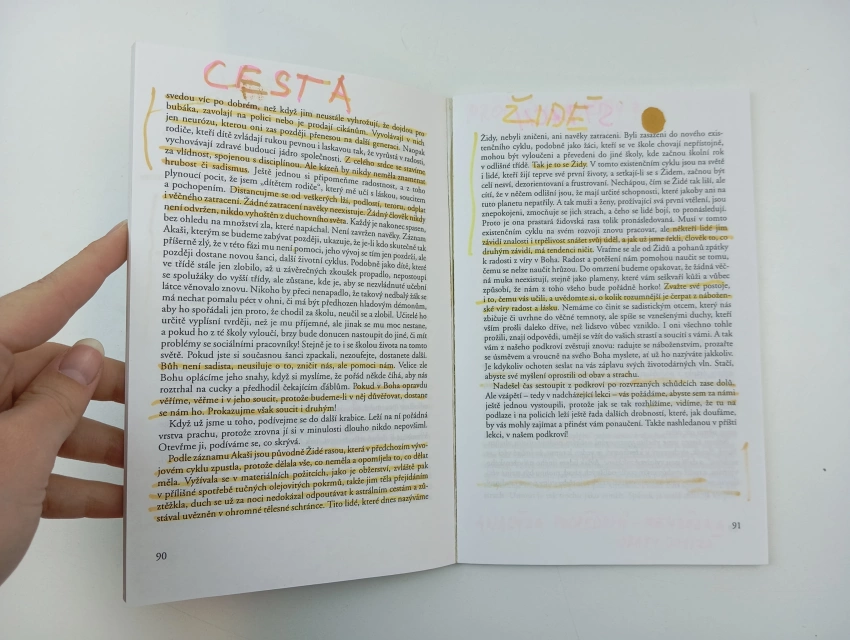 CESTA
svedou víc po dobrém, než když jim neustále vyhrožují, že dojdou pro
bubáka, zavolají na polici nebo je prodají cikánům. Vyvolávají v nich
jen neurózu, kterou oni zas později přenesou na další generaci. Naopak
rodiče, kteří dítě zvládají rukou pevnou i láskavou tak, že vyrůstá v radosti,
vychovávají zdravé budoucí jádro společnosti. Z celého srdce se stavíme
za vlídnost, spojenou s disciplínou. Ale kázeň by nikdy neměla znamenat
hrubost či sadismus. Ještě jednou si připomeňme radostnost, a z toho
plynoucí pocit, že jsem „dítětem rodiče“, který mě učí s láskou, soucitem
a pochopením. Distancujme se od veškerých lží, podlostí, teroru, odplat
i věčného zatracení. Žádné zatracení navěky neexistuje. Žádný člověk nikdy
není odvržen, nikdo vyhoštěn z duchovního světa. Každý je nakonec spasen,
bez ohledu na množství zla, které napáchal. Není zavržen navěky. Záznam
Akaši, kterým se budeme zabývat později, ukazuje, že je-li kdo skutečně tak
příšerně zlý, že v této fázi mu není pomoci, jeho vývoj se tím jen pozdrží, ale
později dostane novou šanci, další životní cyklus. Podobně jako dítě, které
ve třídě stále jen zlobilo, až u závěrečných zkoušek propadlo, nepostoupí
se spolužáky do vyšší třídy, ale zůstane, kde je, aby se nezvládnuté učební
látce věnovalo znovu. Nikoho by přeci nenapadlo, že takový nedbalý žák se
má nechat pomalu péct v ohni, či má být předhozen hladovým démonům,
aby ho spořádali jen proto, že chodil za školu, neučil se a zlobil. Učitelé ho
určitě vyplísní tvrději, než je mu příjemné, ale jinak se mu moc nestane,
a pokud ho z té školy vyloučí, brzy bude donucen nastoupit do jiné, či mít
problémy se sociálními pracovníky! Stejně je to i se školou života na tomto
světě. Pokud jste si současnou šanci zpackali, nezoufejte, dostanete další.
Bůh není sadista, neusiluje o to, zničit nás, ale pomoci nám. Velice zle
Bohu oplácíme jeho snahy, když si myslíme, že pořád někde číhá, aby nás
roztrhal na cucky a předhodil čekajícím ďáblům. Pokud v Boha opravdu
věříme, věřme i v jeho soucit, protože budeme-li v něj důvěřovat, dostane
se nám ho. Prokazujme však soucit i druhým!
Když už jsme u toho, podívejme se do další krabice. Leží na ní pořádná
vrstva prachu, protože zrovna jí si v minulosti dlouho nikdo nepovšiml.
Otevřme ji, podíváme se, co skrývá.
Podle záznamu Akaši jsou původně Židé rasou, která v předchozím vývo-
jovém cyklu zpustla, protože dělala vše, co neměla a opomíjela to, co dělat
měla. Vyžívala se v materiálních požitcích, jako je obžerství, zvláště pak
v přílišné spotřebě tučných olejovitých pokrmů, takže jim těla přejídáním
ztěžkla, duch se už za noci nedokázal odpoutávat k astrálním cestám a zů-
stával uvězněn v ohromné tělesné schránce. Tito lidé, které dnes nazýváme
90
ŽIDÉ
Židy, nebyli zničeni, ani navěky zatraceni. Byli zasazeni do nového exis-
tenčního cyklu, podobně jako žáci, kteří se ve škole chovají nepřístojně,
mohou být vyloučeni a převedeni do jiné školy, kde začnou školní rok
v odlišné třídě. Tak je to se Židy. V tomto existenčním cyklu jsou na světě
i lidé, kteří žijí teprve své první životy, a setkají-li se s Židem, začnou být
celí nesví, dezorientovaní a frustrovaní. Nechápou, čím se Židé tak liší, ale
cítí, že v něčem odlišní jsou, že mají určité schopnosti, které jakoby ani na
tuto planetu nepatřily. A tak muži a ženy, prožívající svá první vtělení, jsou
znepokojeni, zmocňuje se jich strach, a čeho se lidé bojí, to pronásledují.
Proto je ona prastará židovská rasa tolik pronásledovaná. Musí v tomto
existenčním cyklu na svém rozvoji znovu pracovat, ale někteří lidé jim
závidí znalosti i trpělivost snášet svůj úděl, a jak už jsme řekli, člověk to, co
druhým závidí, má tendenci ničit. Vraťme se ale od Židů a pohanů zpátky
k radosti z víry v Boha. Radost a potěšení nám pomohou naučit se tomu,
čemu se nelze naučit hrůzou. Do omrzení budeme opakovat, že žádná věč-
ná muka neexistují, stejně jako plameny, které vám seškvaří kůži a vůbec
způsobí, že nám z toho všeho bude pořádně horko! Zvažte své postoje,
i to, čemu vás učili, a uvědomte si, o kolik rozumnější je čerpat z nábožen-
ské víry radost a lásku. Nemáme co činit se sadistickým otcem, který nás
zbičuje či uvrhne do věčné temnoty, ale spíše se vznešenými duchy, kteří
vím prošli daleko dříve, než lidstvo vůbec vzniklo. I oni všechno tohle
prožili, znají odpovědi, umějí se vžít do vašich strastí a soucítí s vámi. A tak
vám z našeho podkroví zvěstují znovu: radujte se náboženstvím, prozařte
se úsměvem a vroucně na svého Boha myslete, ať už ho nazýváte jakkoliv.
Je kdykoliv ochoten seslat na vás záplavu svých životodárných vln. Stačí,
abyste své myšlení oprostili od obav a strachu.
Nadešel čas sestoupit z podkroví po rozvrzaných schůdcích zase dolů.
Ale vzápětí – tedy v nadcházející lekci – vás požádáme, abyste sem za námi
ještě jednou vystoupili, protože jak se tak rozhlížíme, vidíme, že tu na
podlaze i na policích leží ještě řada dalších drobností, které, jak doufáme,
by vás mohly zajímat a přinést vám ponaučení. Takže nashledanou v příští
lekci, v našem podkroví!
91